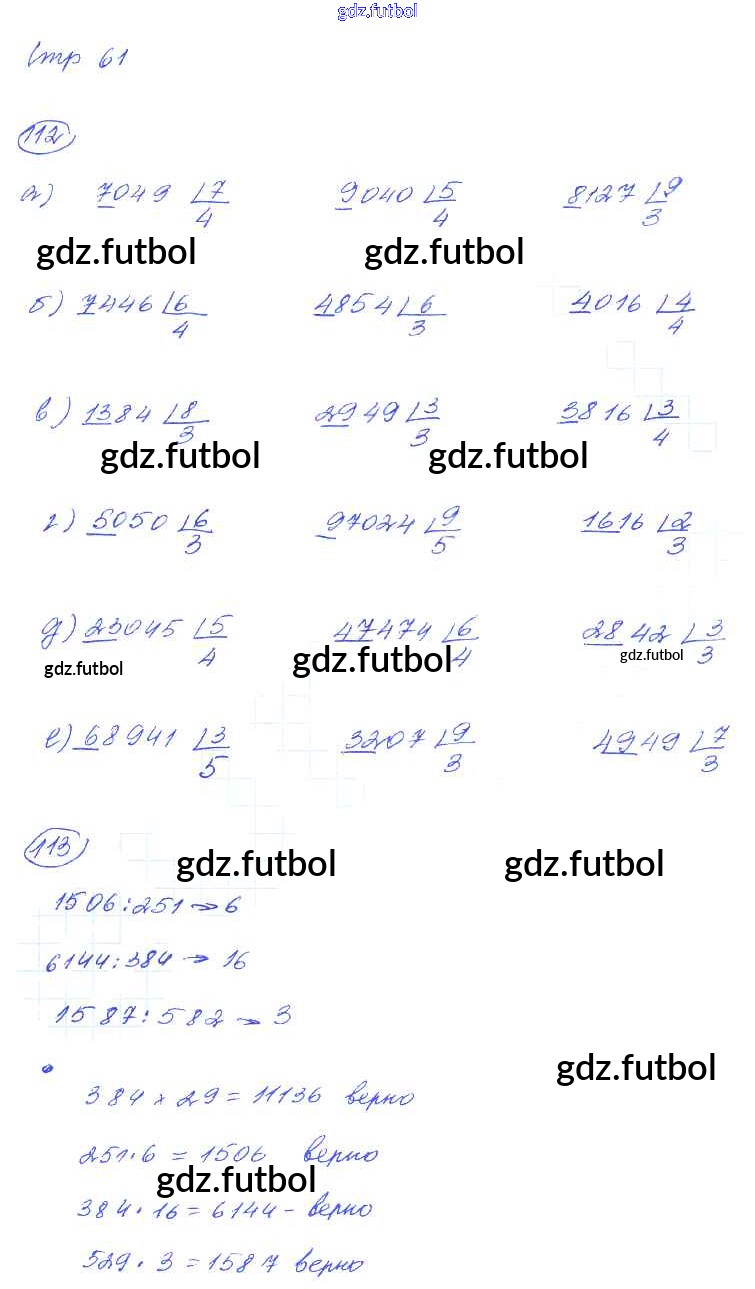 gdz.futbol
Стр 61
112
а) 7049 7 9040 5 8127 9
4 4 3
gdz.futbol gdz.futbol
б) 7446 6 4854 6 4016 4
4 3 4
в) 1384 8 2949 3 3816 3
3 3 4
gdz.futbol gdz.futbol
г) 5050 6 97024 9 1616 2
3 5 3
д) 23045 5 47474 6 2842 3
4 4 3
gdz.futbol gdz.futbol gdz.futbol
е) 68941 3 3207 9 4949 7
5 3 3
113
gdz.futbol gdz.futbol
1506:251 → 6
6144:384 → 16
1587:582 → 3
gdz.futbol
384 × 29 = 11136 верно
251·6 = 1506 верно
gdz.futbol
384·16 = 6144 - верно
529·3 = 1587 верно